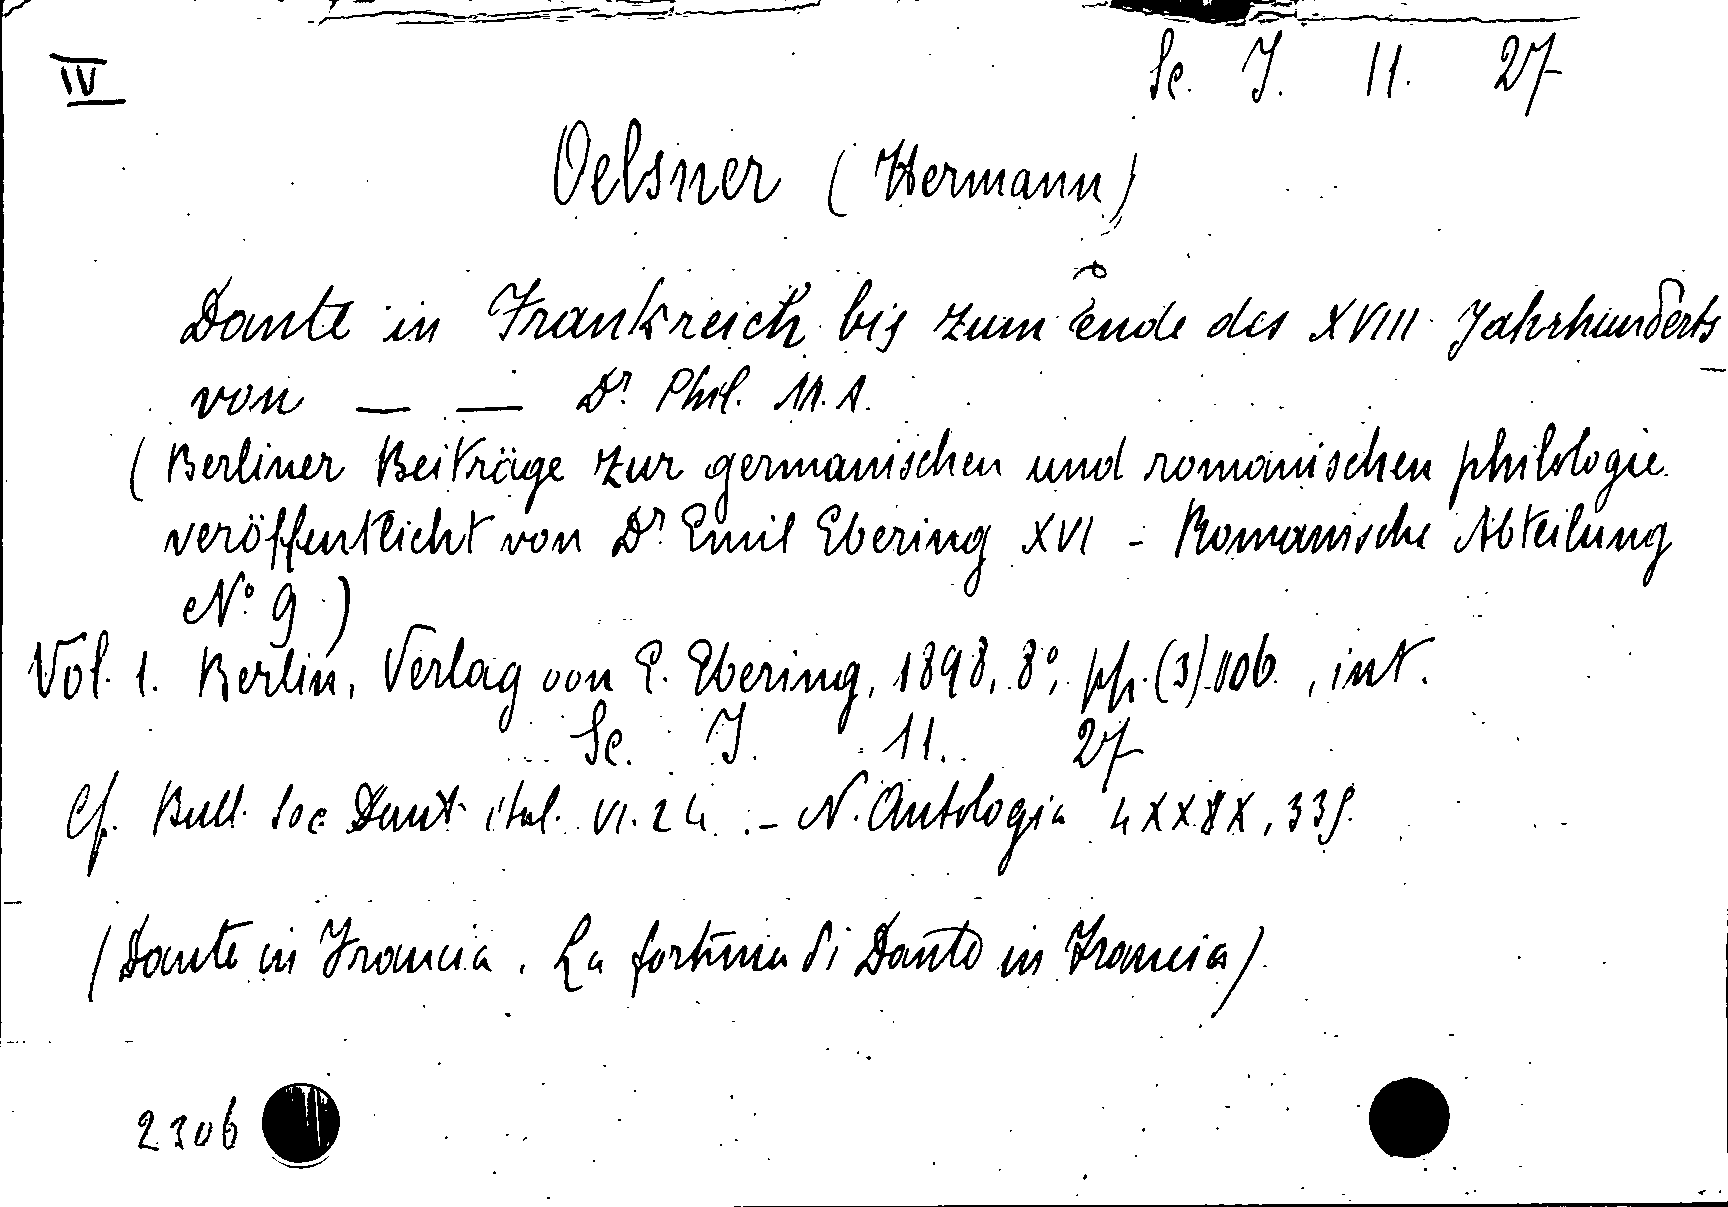 IV
Sc. J. 11. 27
Oelsner (Hermann)
Dante in Frankreich bis zum Ende des XVIII Jahrhunderts
von — — Dr. Phil. M.A.
(Berliner Beiträge zur germanischen und romanischen philologie
veröffentlicht von Dr. Emil Ebering XVI - Romanische Abteilung
No. 9)
Vol. 1. Berlin, Verlag von E. Ebering, 1898, 8°, pp. (3) 106, int.
Sc. J. 11. 27
Cf. Bull. Soc Dant ital. VI. 24. - N. Antologia
(Dante in Francia. La fortuna di Dante in Francia)
2306